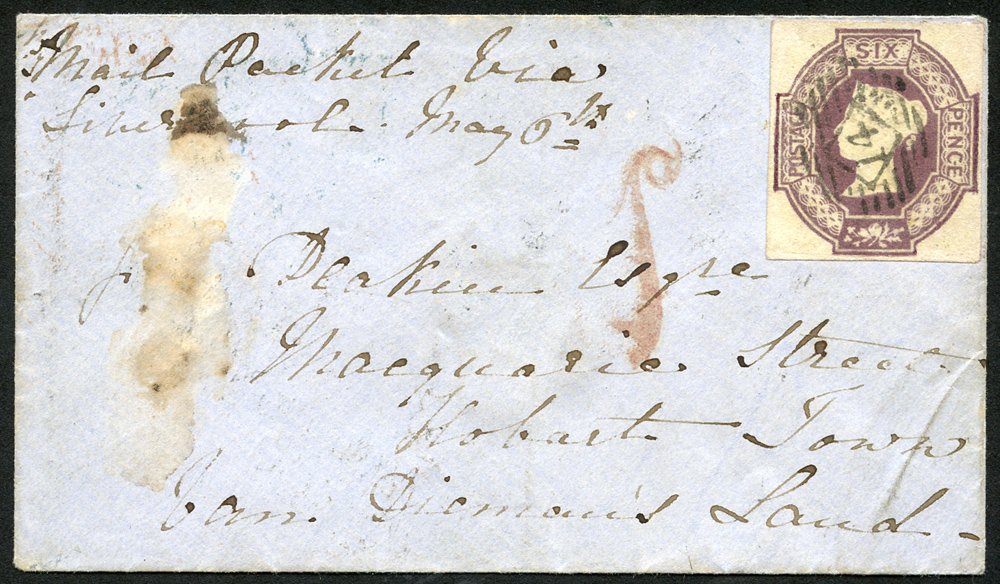 Mail Packet Via
Liverpool. May 6th
SIX
POSTAGE
PENCE
J Deakin Esqre
Macquarie Street
Hobart Town
Van Dieman's Land -